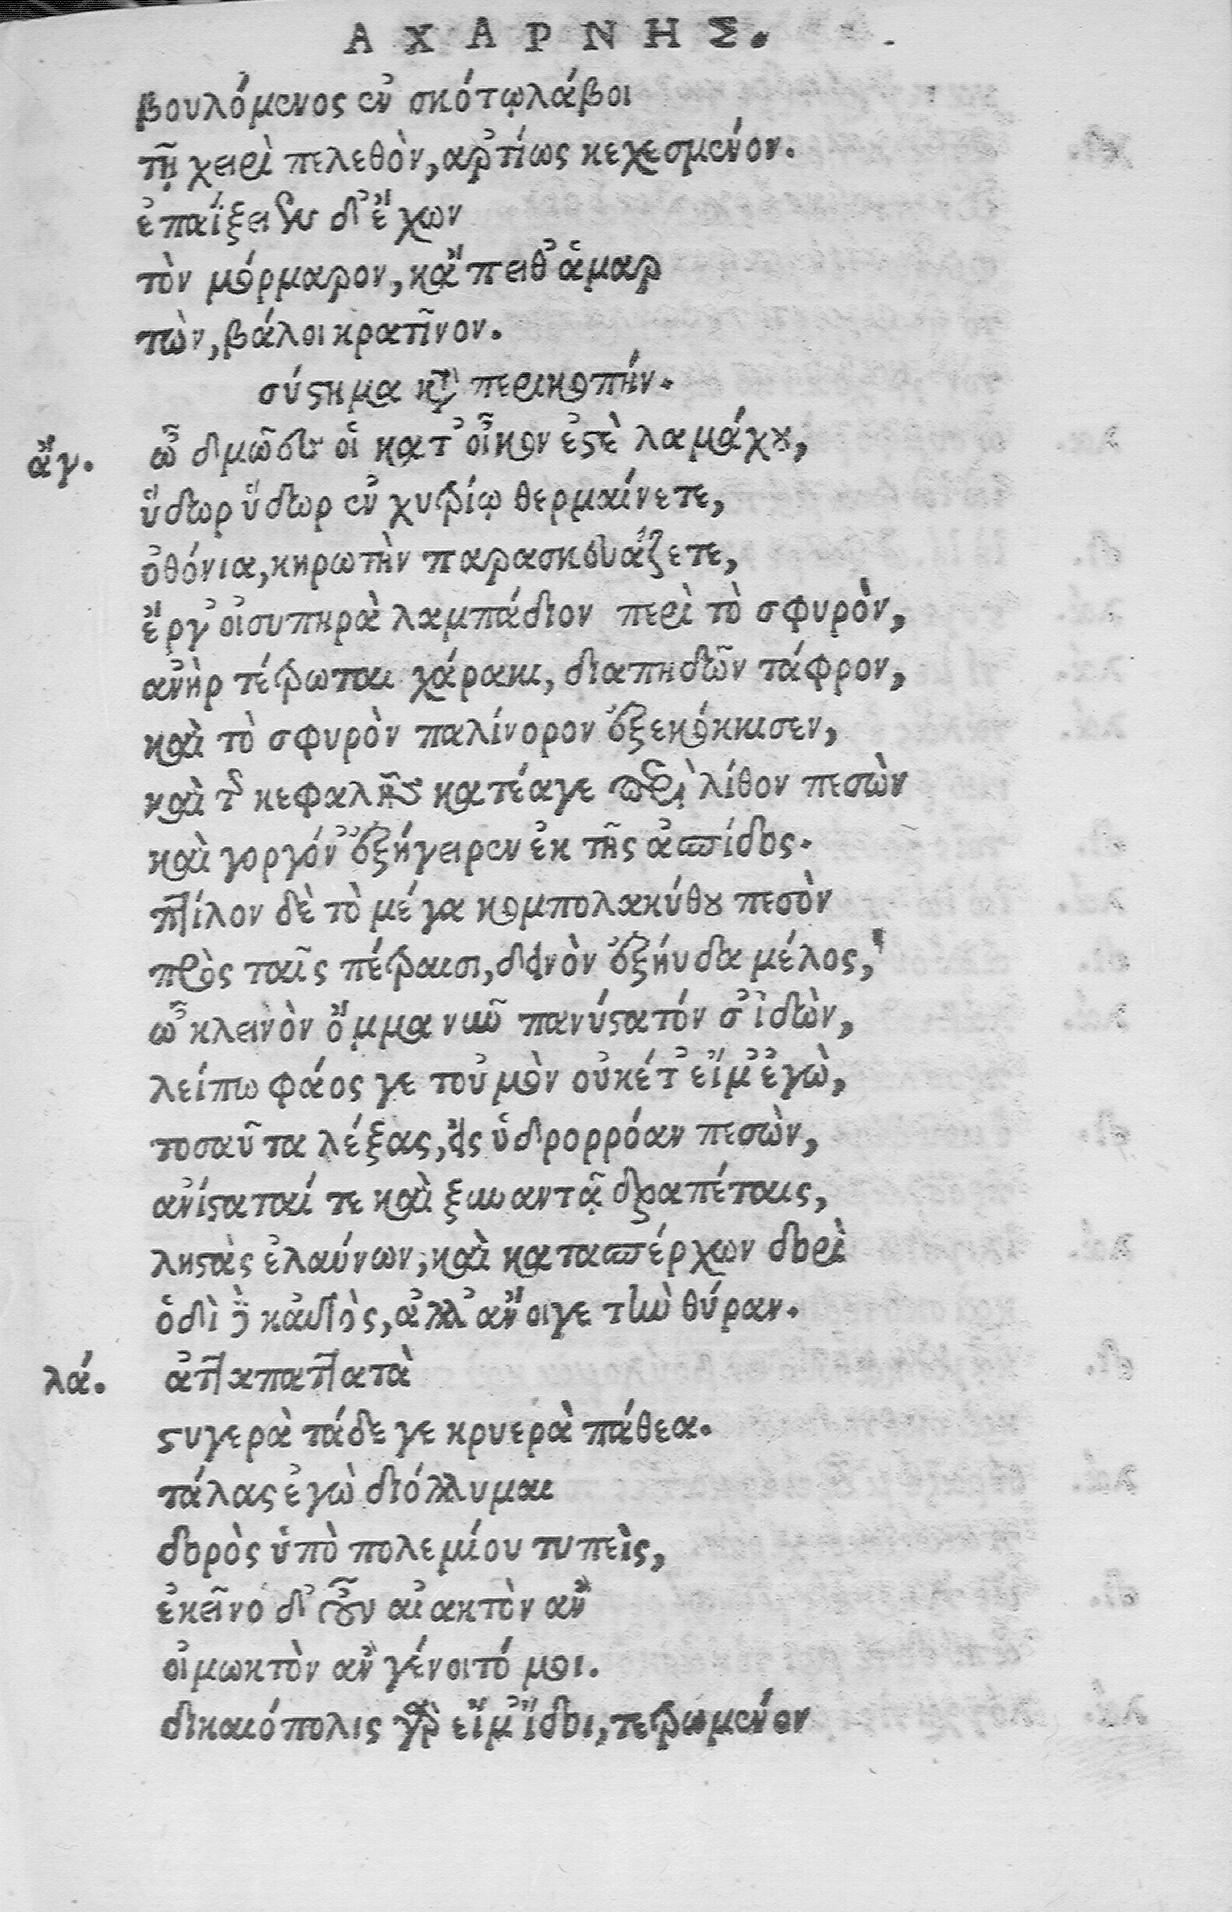 ΑΧΑΡΝΗΣ.
βουλόμενος ἐν σκότῳ λάβοι
τῇ χειρὶ πελεθὸν, ἀρτίως κεχεσμένον.
ἐπαΐξειεν δ' ἔχων
τὸν μάρμαρον, κἄπειθ' ἁμαρ
τὼν, βάλοι κρατῖνον.
σύστημα κτ̃ περικοπήν.
ἄγ. ὦ δμῶες οἱ κατ' οἶκον ἐστὲ λαμάχου,
ὕδωρ ὕδωρ ἐν χυτρίῳ θερμαίνετε,
ὀθόνια, κηρωτὴν παρασκευάζετε,
ἔργ' οἰσυπηρὰ λαμπάδιον περὶ τὸ σφυρὸν,
ἀνὴρ τέτρωται χάρακι, διαπηδῶν τάφρον,
καὶ τὸ σφυρὸν παλίνορον ἐξεκόκκισεν,
καὶ τῆς κεφαλῆς κατέαγε περὶ λίθον πεσὼν
καὶ γοργόν' ἐξήγειρεν ἐκ τῆς ἀσπίδος.
πτίλον δὲ τὸ μέγα κομπολακύθου πεσὸν
πρὸς ταῖς πέτραισι, δεινὸν ἐξήυδα μέλος,
ὦ κλεινὸν ὄμμα νῦν πανύστατόν σ' ἰδὼν,
λείπω φάος γε τοὐμὸν οὐκέτ' εἴμ' ἐγὼ,
τοσαῦτα λέξας, εἰς ὑδρορρόαν πεσὼν,
ἀνίσταταί τε καὶ ξυναντᾷ δραπέταις,
λῃστὰς ἐλαύνων, καὶ κατασπέρχων δορὶ
ὁδὶ δὲ καὐτὸς, ἀλλ' ἄνοιγε τὴν θύραν.
λά. ἀτταπαττατὰ
στυγερὰ τάδε γε κρυερὰ πάθεα.
τάλας ἐγὼ διόλλυμαι
δορὸς ὑπὸ πολεμίου τυπεὶς,
ἐκεῖνο δ' οὖν αἰακτὸν ἂν
οἰμωκτὸν ἂν γένοιτό μοι.
δικαιόπολις γὰρ εἴμ' ἴδοι, τετρωμένον